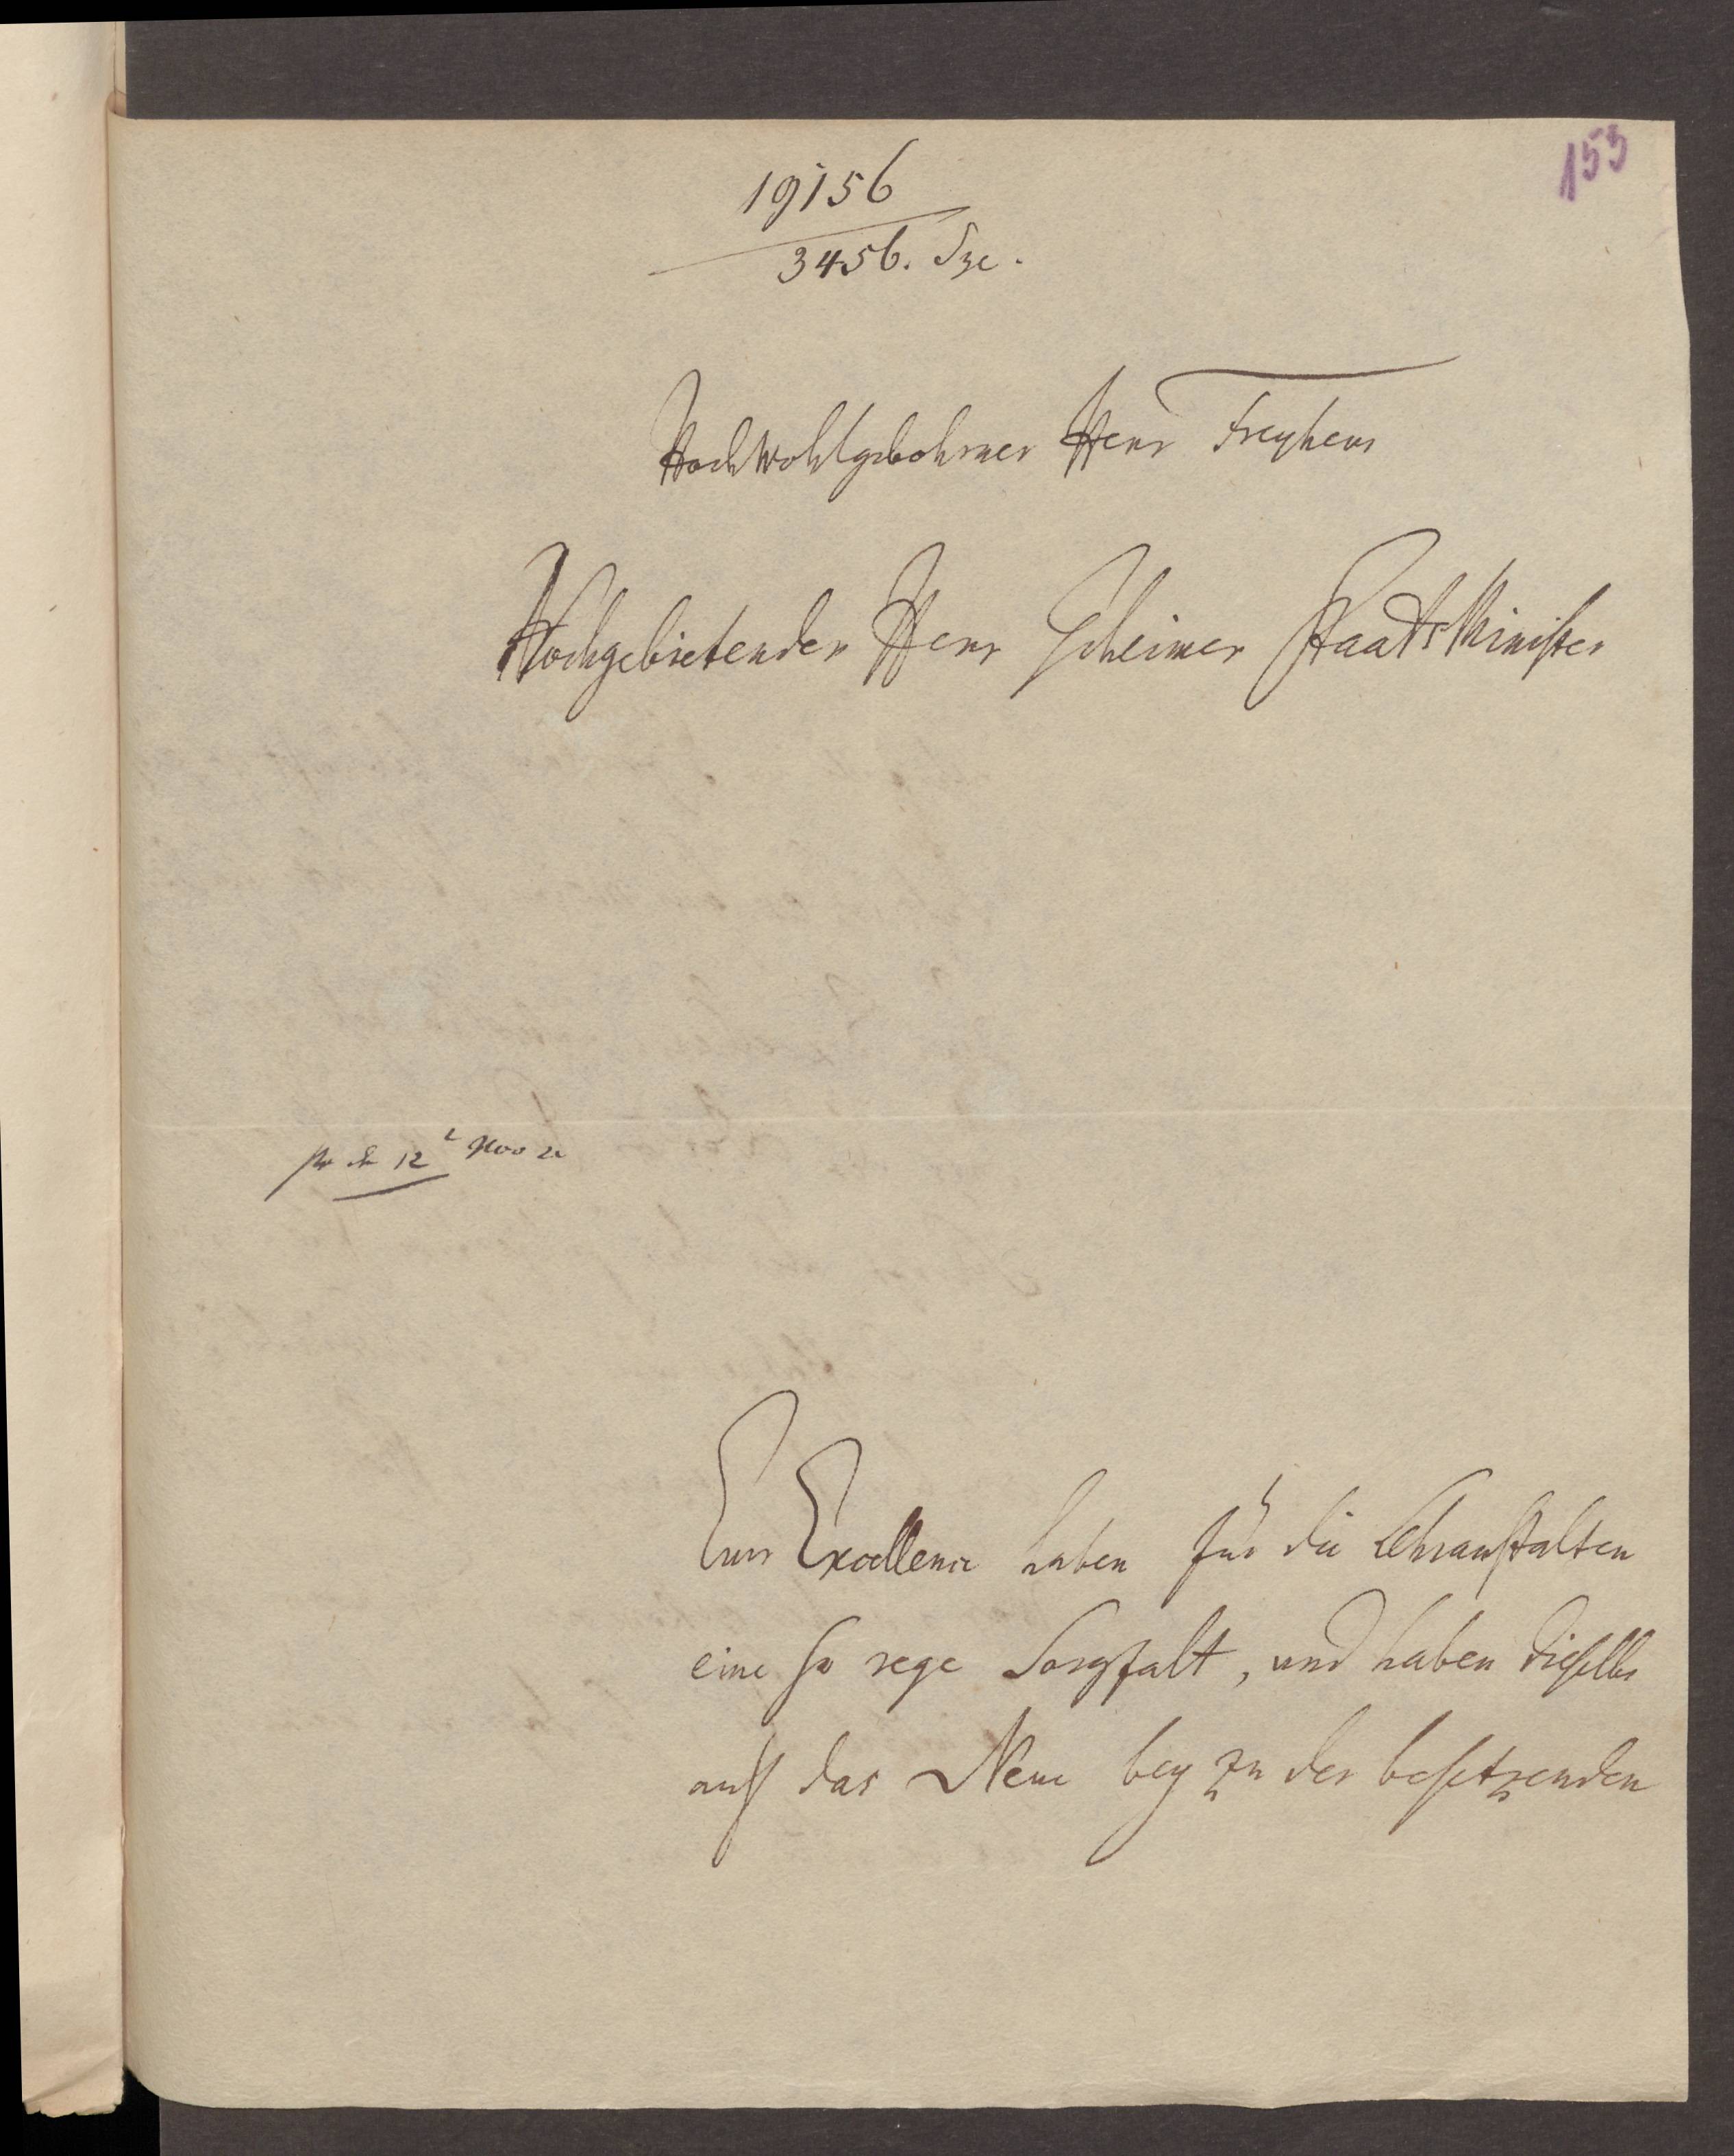 153
19156
3456.
Hochwohlgebohrner Herr Freyherr
Hochgebietender Herr Geheimer StaatsMinister
12 Nov
Eure Excellence haben für die Lehranstalten
eine so rege Sorgfalt, und haben dieselbe
aufs das Neue bey zu der besetzenden